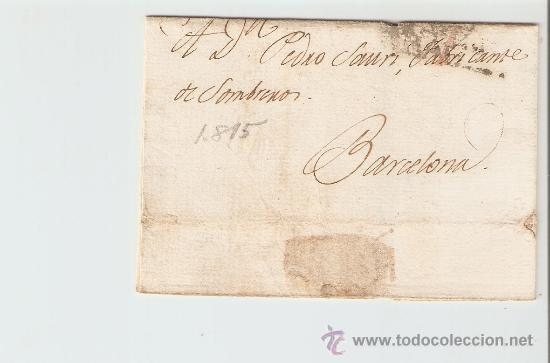 A Dn Pedro Sauri, Fabricante
de Sombreros.
1.815
Barcelona.
www.todocoleccion.net